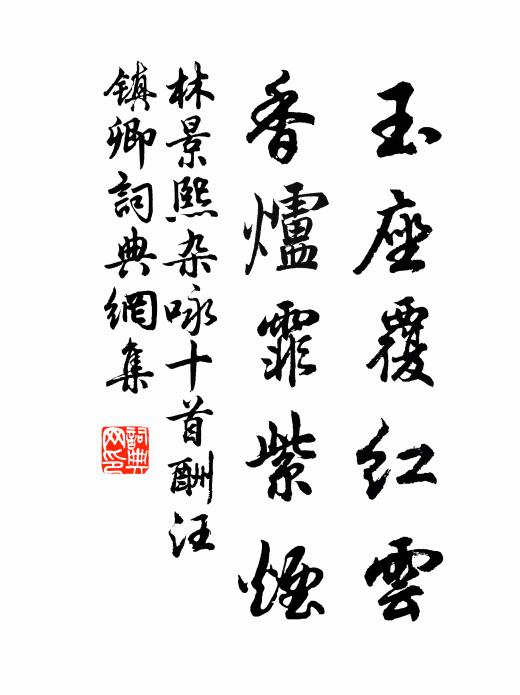 玉座覆紅雲
香爐霏紫煙
林景熙杂咏十首酬汪
鎮卿詞典網集
詞典网印